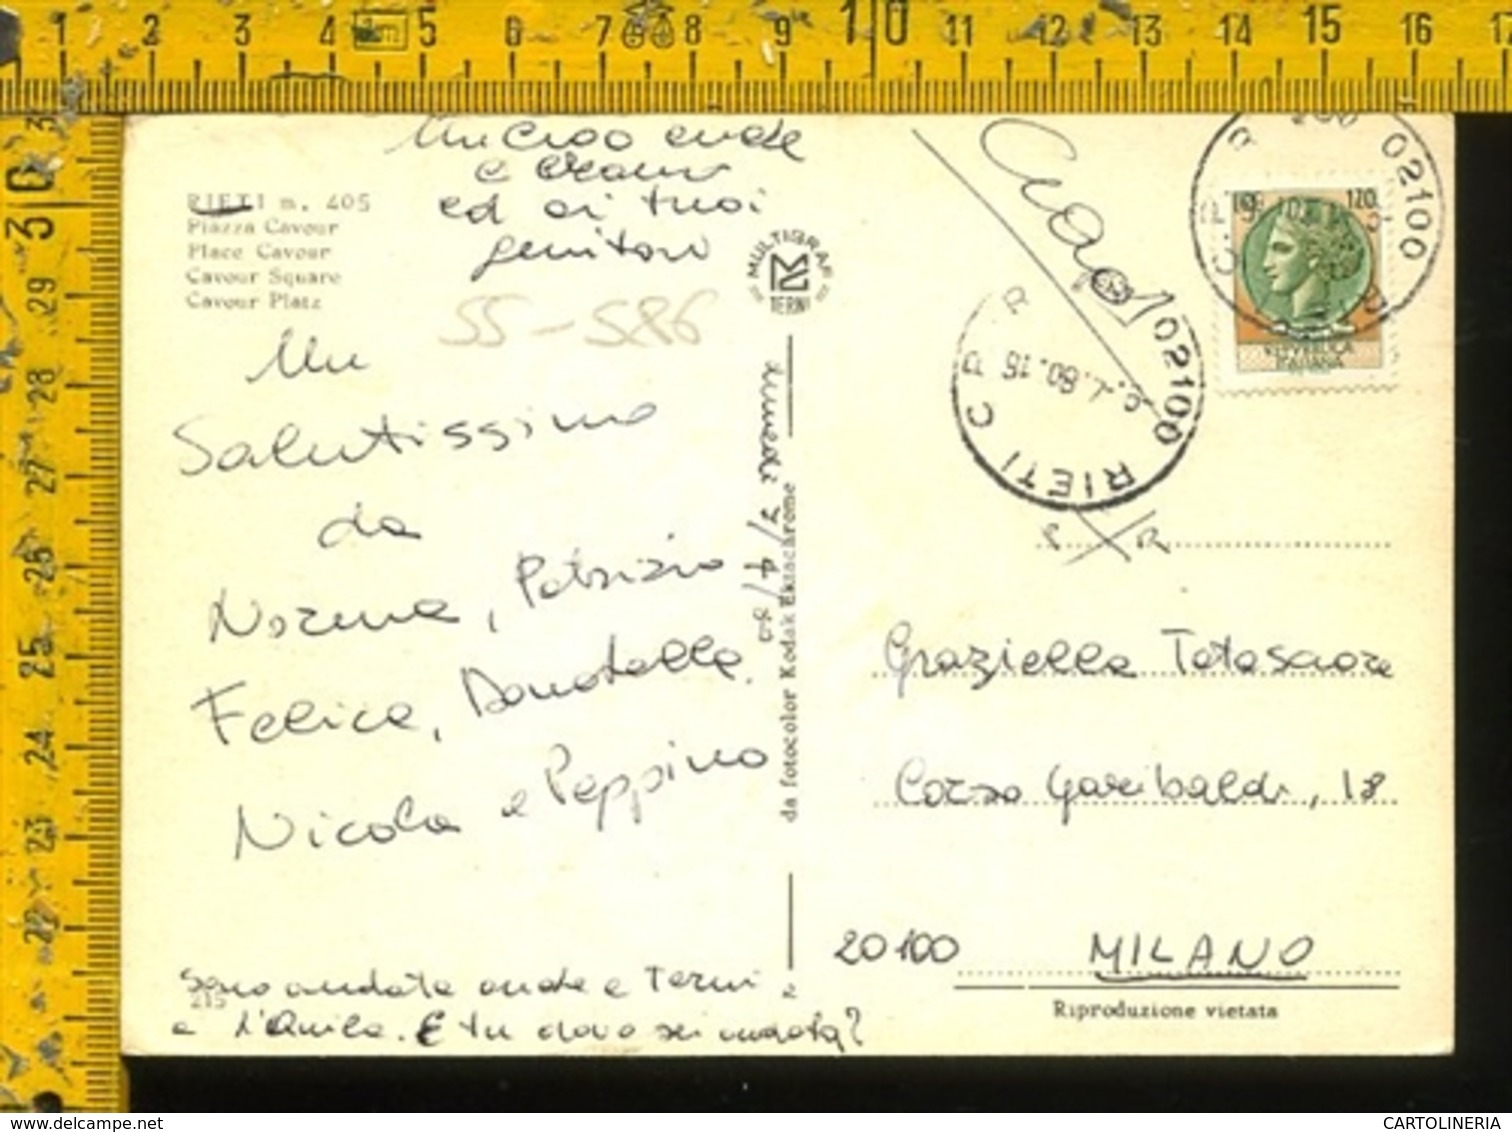 Un ciao anche
a
ed ai tuoi
genitori
RIETI m. 405
Piazza Cavour
Place Cavour
Cavour Square
Cavour Platz
55-586
Un
Salutissimo
da
Norma, Patrizio
Felice, Donatella
Nicola e Peppino
Sono andata anche a Terni
215
a L'Aquila. E tu dove sei andata?
MULTIGRAF
TERNI
lunedì 7/4/80
da fotocolor Kodak Ektachrome
Ciao!
02100 RIETI C
02100
170
REPUBBLICA
ITALIANA
Graziella
Corso Garibaldi, 18
20100 MILANO
Riproduzione vietata
1 2 3 4 5 6 7 8 9 10 11 12 13 14 15 16 17
30 29 28 27 26 25 24 23 22
delcampe.net
CARTOLINERIA